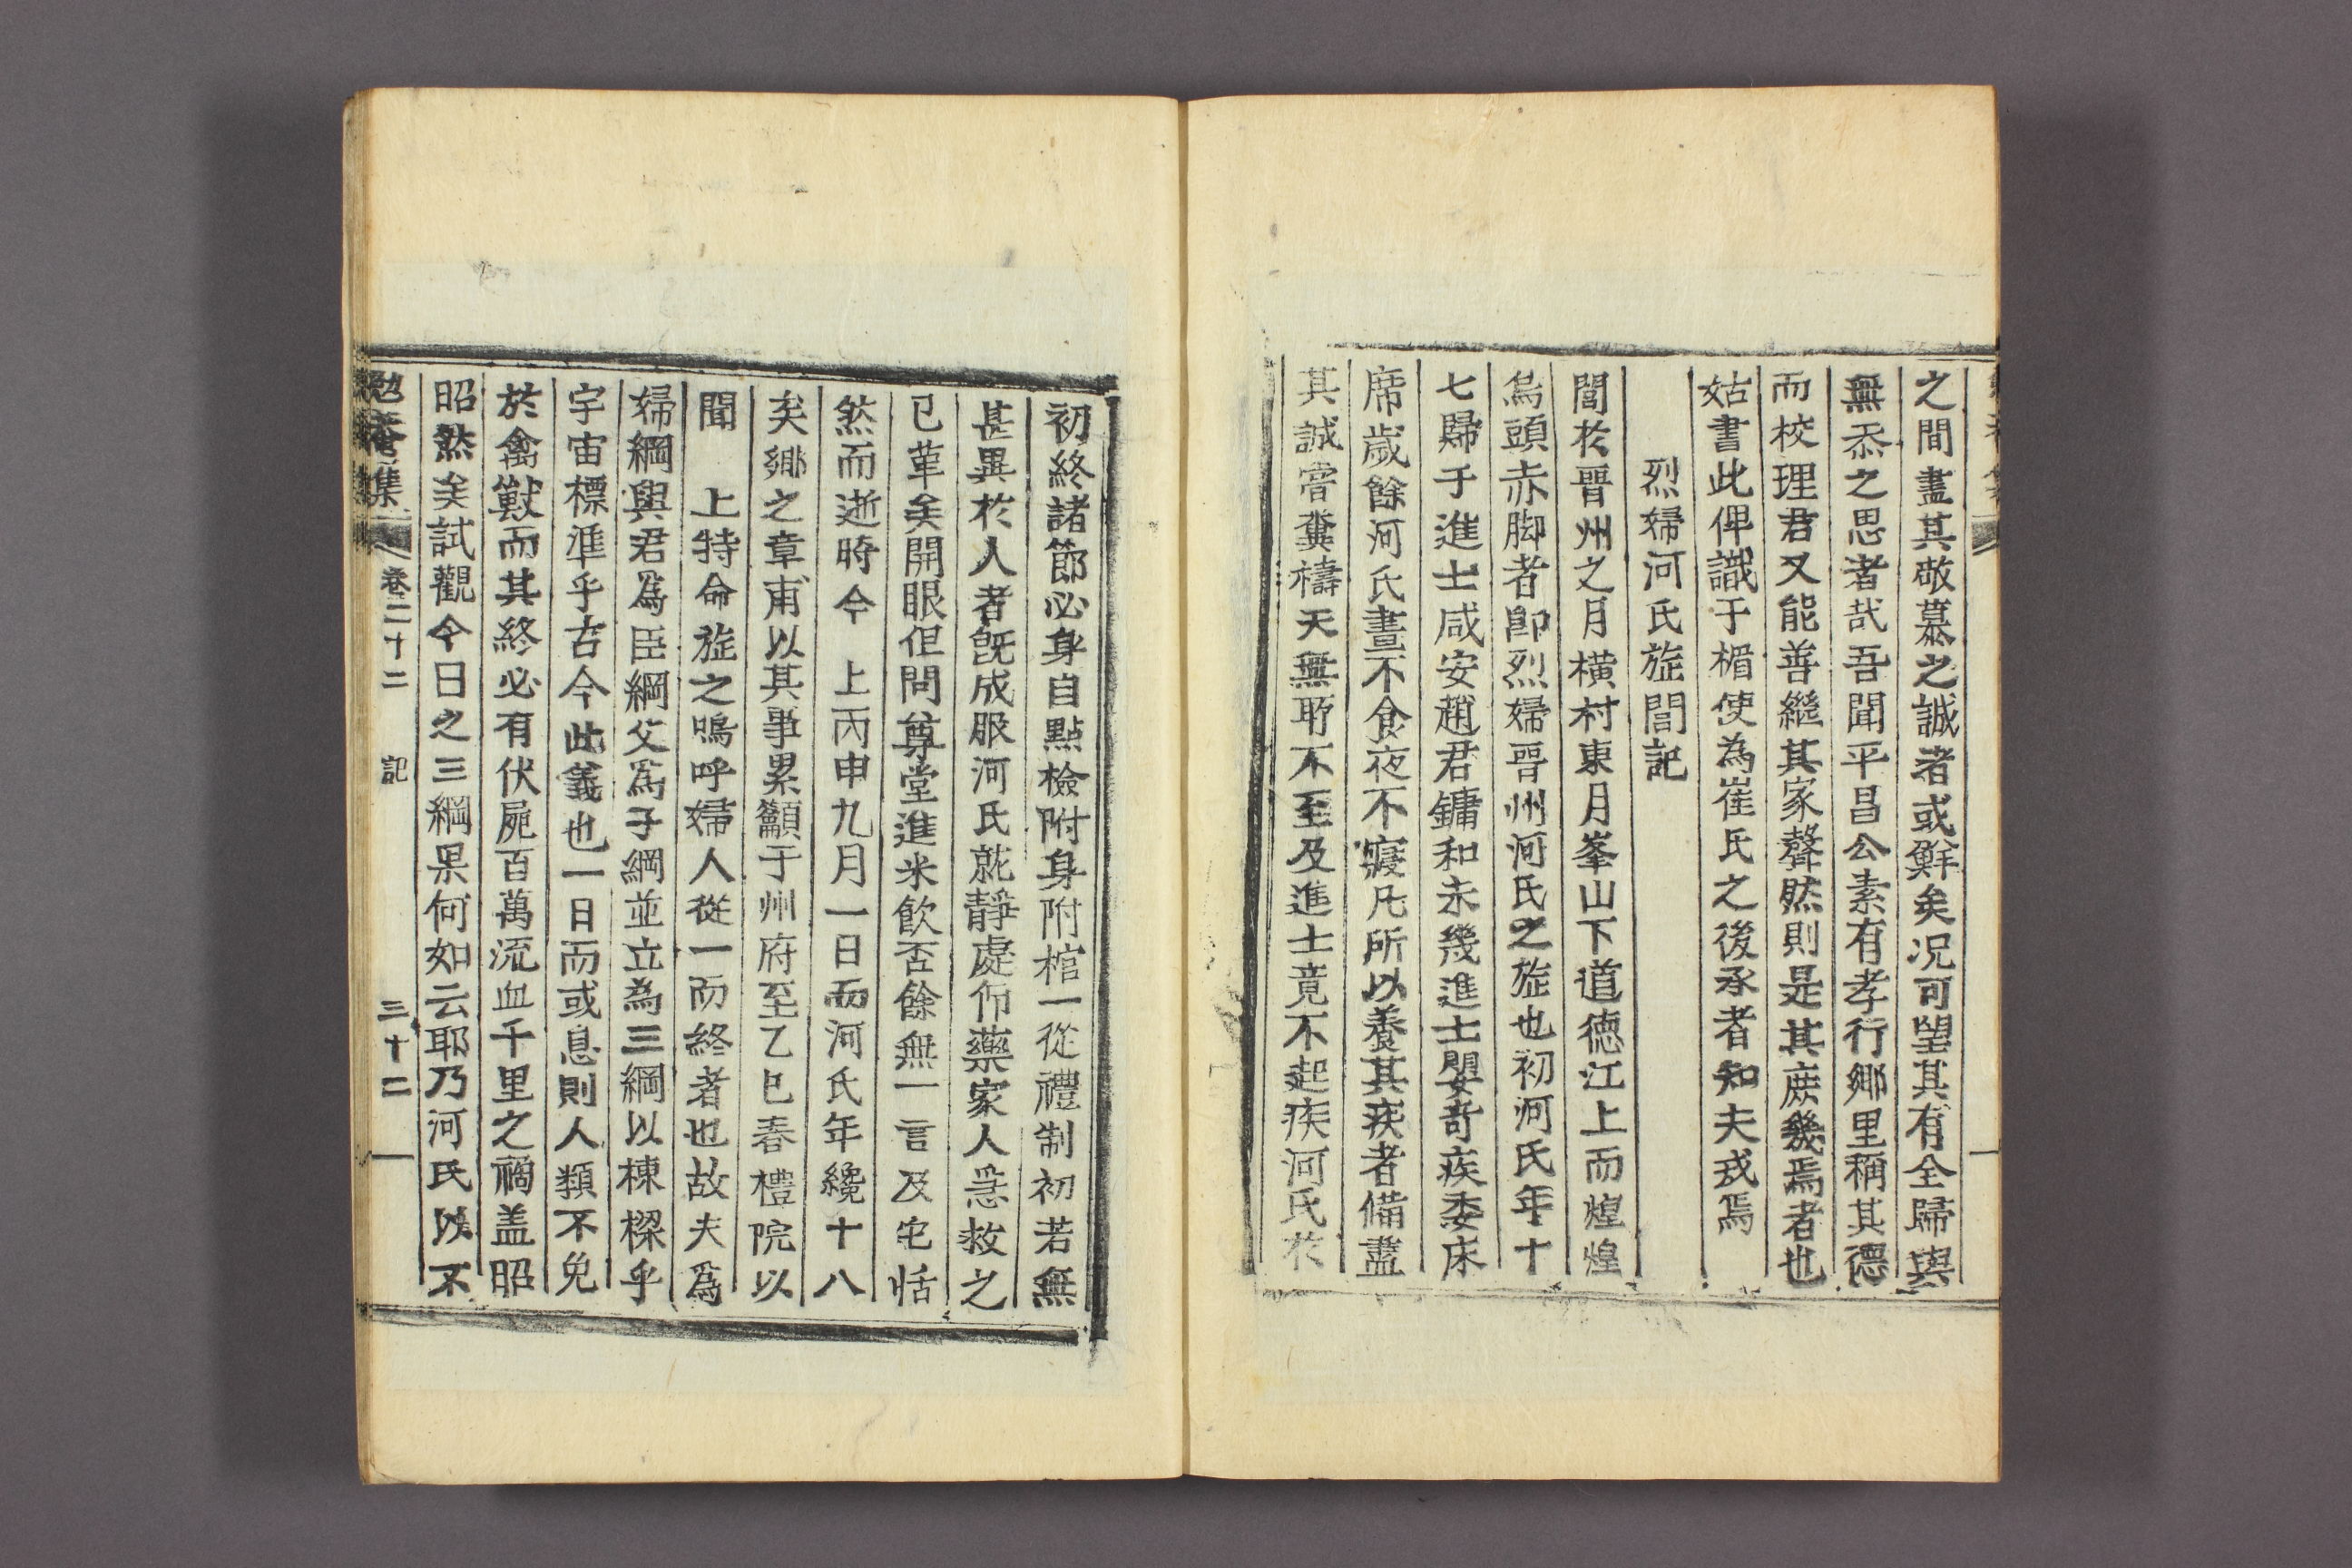 之間盡其敬慕之誠者或鮮矣况可望其有全歸與
無忝之思者哉吾聞平昌公素有孝行鄉里稱其德
而校理君又能善繼其家聲然則是其庶幾焉者也
姑書此俾識于楣使為崔氏之後承者知夫戒焉
烈婦河氏旌閭記
閭於晋州之月横村東月峯山下道德江上而煌煌
烏頭赤脚者卽烈婦晋州河氏之旌也初河氏年十
七歸于進士咸安趙君鏞和未幾進士嬰奇疾委床
席歲餘河氏晝不食夜不寢凡所以養其疾者備盡
其誠甞糞禱天無所不至及進士竟不起疾河氏於
初終諸節必身自點檢附身附棺一從禮制初若無
甚異於人者旣成服河氏就靜處仰藥家人急救之
已革矣開眼但問尊堂進米飮否餘無一言及它恬
然而逝時今 上丙申九月一日而河氏年纔十八
矣鄉之章甫以其事累籲于州府至乙巳春禮院以
聞 上特命旌之嗚呼婦人從一而終者也故夫爲
婦綱與君爲臣綱父爲子綱並立為三綱以棟樑乎
宇宙標準乎古今此義也一日而或息則人類不免
於禽獸而其終必有伏屍百萬流血千里之禍盖昭
昭然矣試觀今日之三綱果何如云耶乃河氏以不
勉菴集 卷二十二 記 三十二